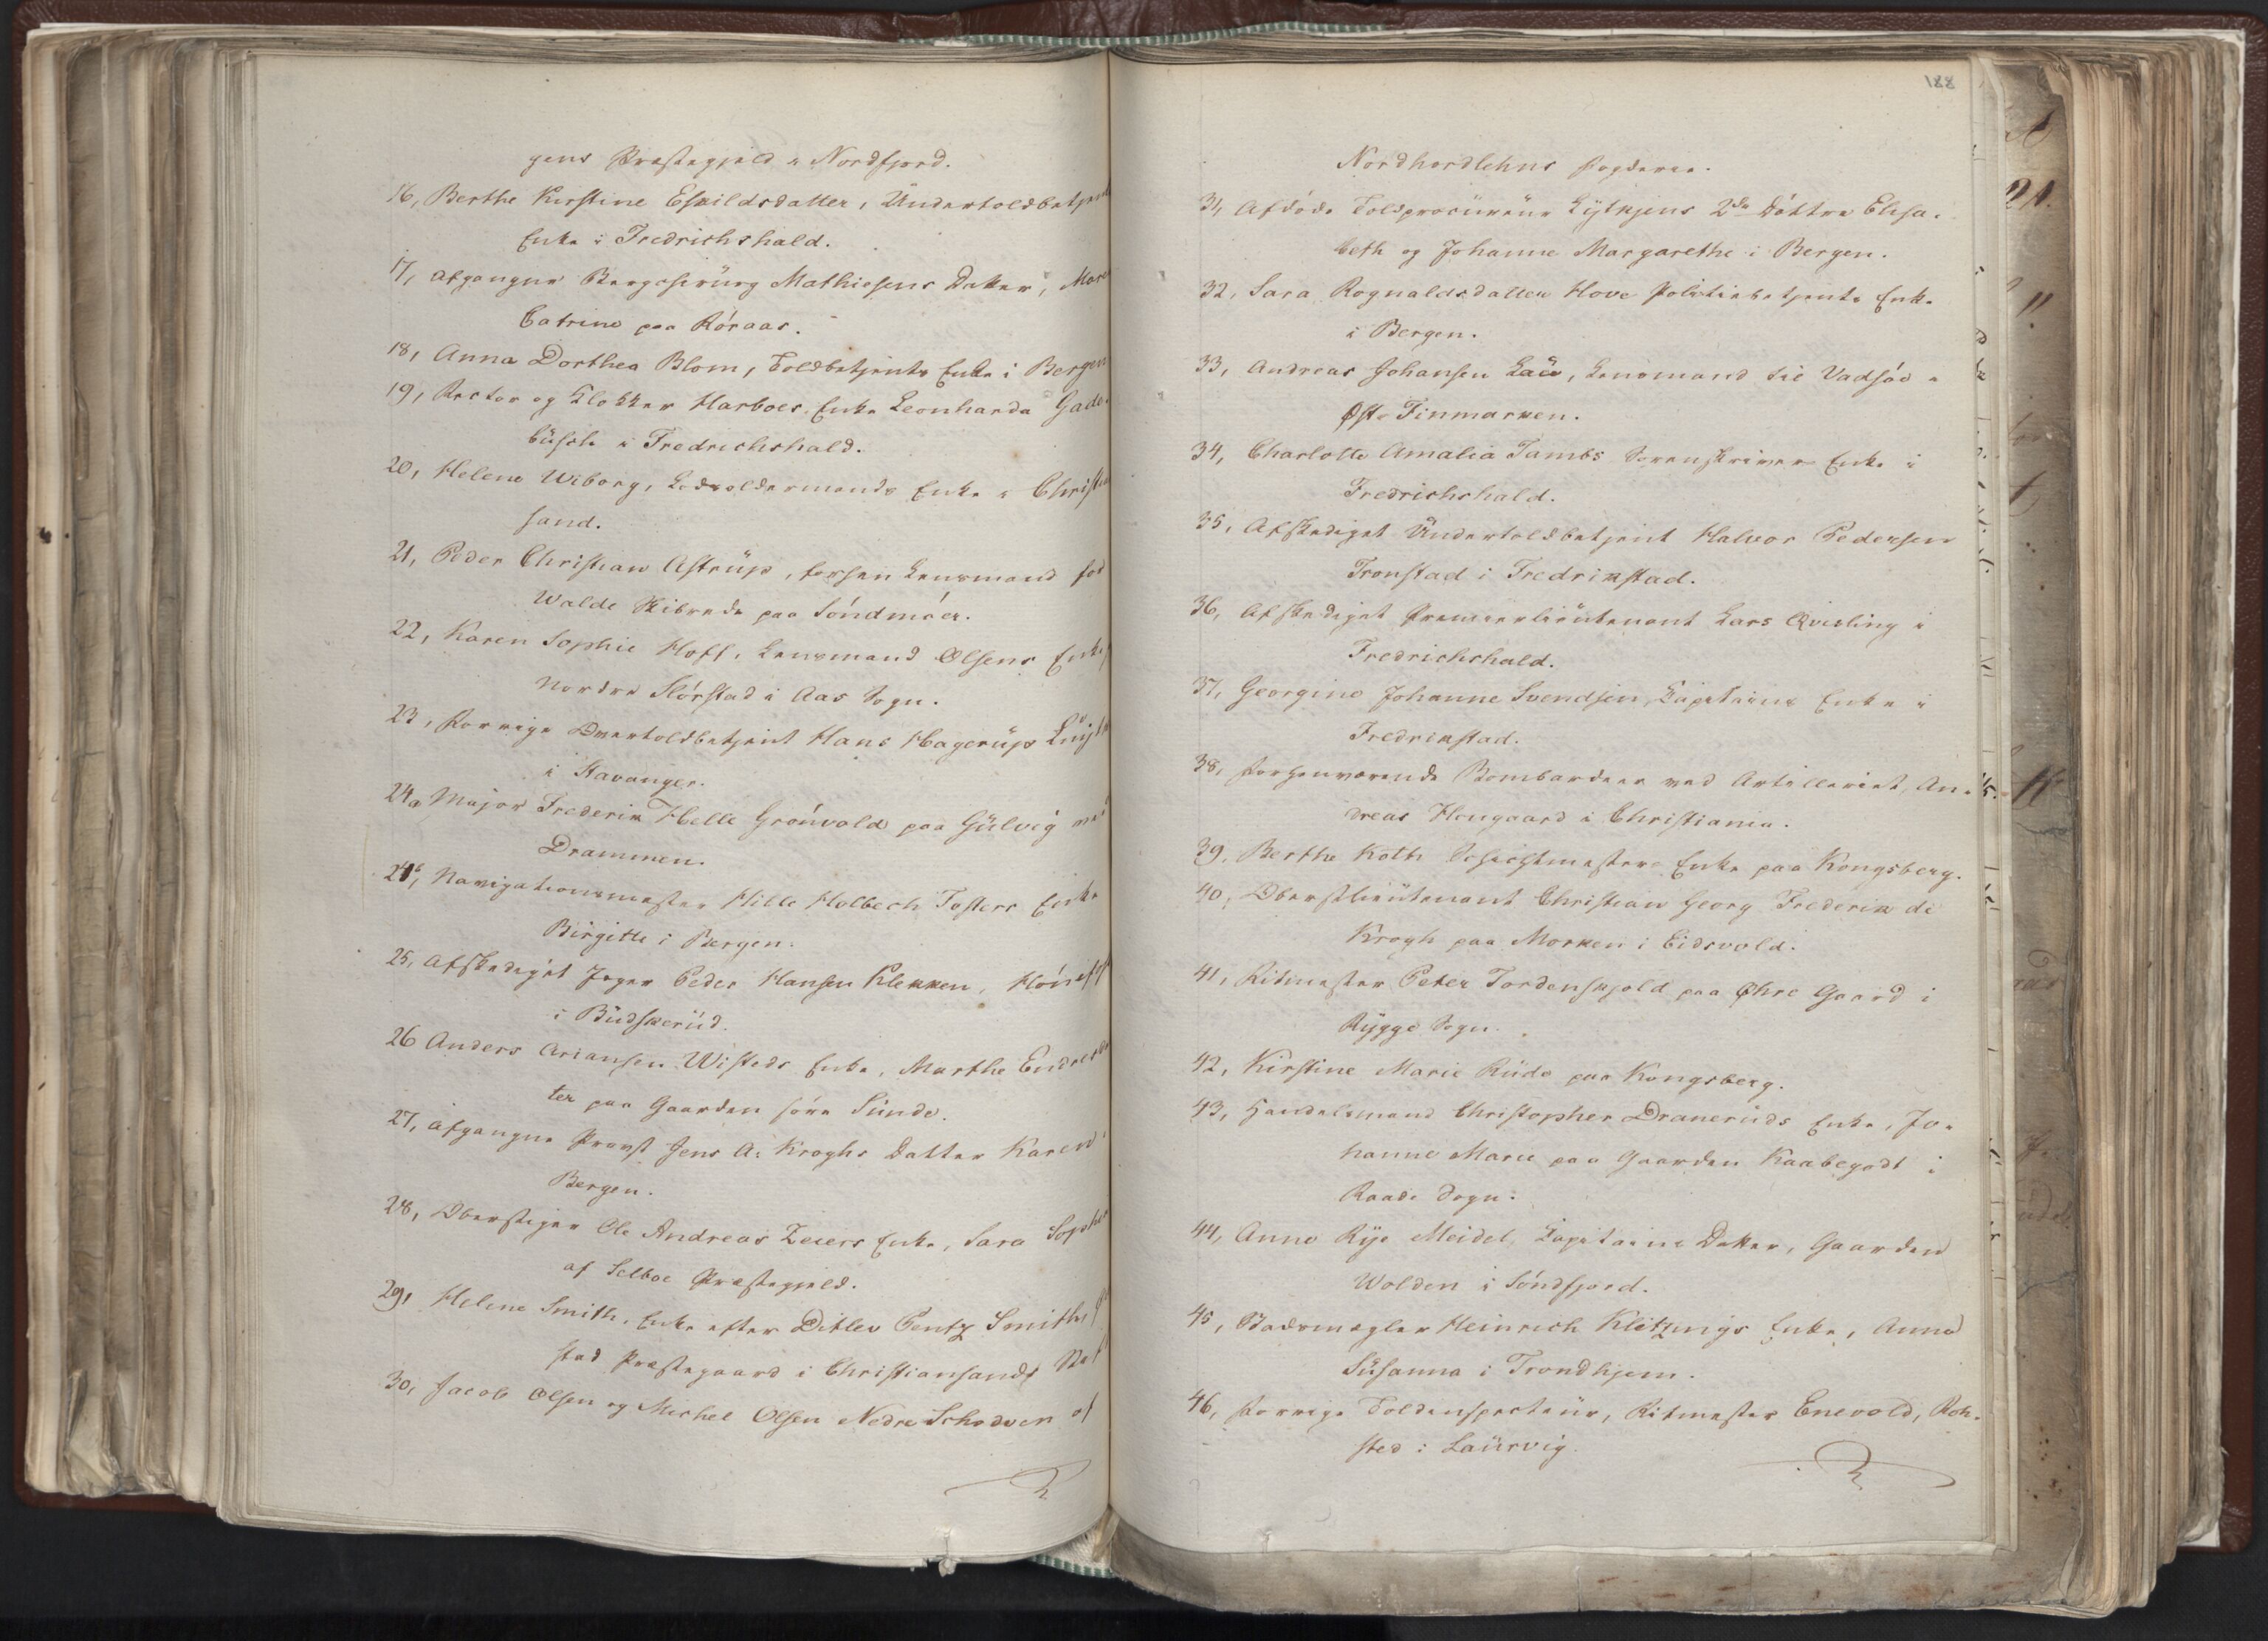 gens Præstegjeld i Nordfjord.
16, Berthe Kirstine Eskildsdatter, Undertoldbetjent
Enke i Fredrichshald.
17, afgangne Bergchirurg Mathiesens Datter, Mare
Catrine paa Röraas.
18, Anna Dorthea Blom, Toldbetjents Enke i Bergen
19, Rector og Klokker Harboes Enke Leonharda Gade-
busch i Fredrichshald.
20, Helene Wiborg, Lodsoldermands Enke i Christian
sand.
21, Peder Christian Astrup, forhen Lensmand for
Walde Skibrede paa Söndmöer.
22, Karen Sophie Hoff, Lensmand Olsens Enke
Nordre Slörstad i Aas Sogn.
23, Forrige Overtoldbetjent Hans Hagerup
i Stavanger.
24a Major Frederik Helle Grönvold paa Gulvig ved
Drammen.
24b, Navigationsmester Hille Holbech Tosters Enke
Birgitte i Bergen.
25, Afskediget Jæger Peder Hansen Klekken, Hönef
i Budskerud.
26 Anders Ariansen Wisteds Enke, Marthe Endresdat
ter paa Gaarden före Sunde.
27, afgangne Provst Jens A: Kroghs Datter Karen i
Bergen.
28, Oberstiger Ole Andreas Zeiers Enke, Sara Sophie
af Selboe Præstegjeld.
29, Helene Smith, Enke efter Ditlev Pentz Smith,
stad Præstegaard i Christiansands Stift
30, Jacob Olsen og Michel Olsen Nedre Schodven af
188
Nordhordlehns Fogderie.
31, Afdöde Toldprocureur Lytkjens 2de Döttre Elisa-
beth og Johanne Margarethe i Bergen.
32, Sara Rognaldsdatter Hove Politiebetjents Enke
i Bergen.
33, Andreas Johansen Lau, Lensmand til Vadsöe i
Öst-Finmarken.
34, Charlotte Amalia Tambs Sorenskriver Enke i
Fredrichshald.
35, Afskediget Undertoldbetjent Halvor Pedersen
Tronstad i Fredrikstad.
36, Afskediget Premierlieutenant Lars Qvisling i
Fredrichshald.
37, Georgine Johanne Svendsen, Capitains Enke i
Fredrikstad.
38, Forhenværende Bombardeer ved Artilleriet, An-
dreas Hougaard i Christiania.
39, Berthe Koth Schichtmesters Enke paa Kongsberg.
40, Oberstlieutenant Christian Georg Frederik de
Krogh paa Morken i Eidsvold.
41, Ritmester Peter Tordenskjold paa Öhre Gaard i
Rygge Sogn.
42, Kirstine Marie Rude paa Kongsberg.
43, Handelsmand Christopher Draneruds Enke, Jo-
hanne Marie paa Gaarden Kaabegadt i
Raade Sogn.
44, Anne Rye Meidel, Capitains Datter, Gaarden
Wolden i Söndfjord.
45, Stadsmægler Heinrich Klitzings Enke, Anna
Susanna i Trondhjem.
46, Forrige Toldinspecteur, Ritmester Enevold, Roh-
sted i Laurvig.